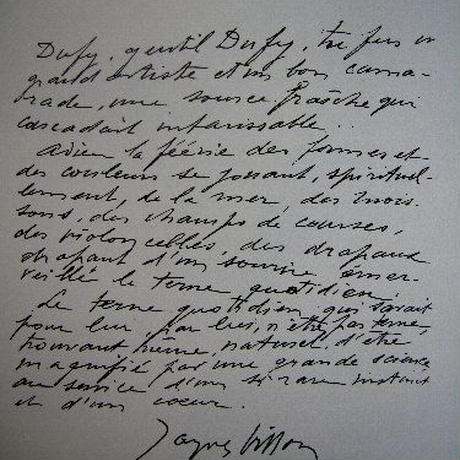 Dufy, gentil Dufy, tu fus un
grand artiste et un bon cama-
rade, une source fraîche qui
cascadait intarissable..
Adieu la féérie des formes et
des couleurs se jouant, spirituel-
lement, de la mer, des mois-
sons, des champs de courses,
des violoncelles, des drapeaux
drapant d'un sourire émer-
veillé le terne quotidien.
Le terne quotidien qui savait
pour lui, par lui, n'être pas terne,
trouvant même, naturel d'être
magnifié par une grande science
au service d'un si rare instinct
et d'un cœur.
Jacques Villon